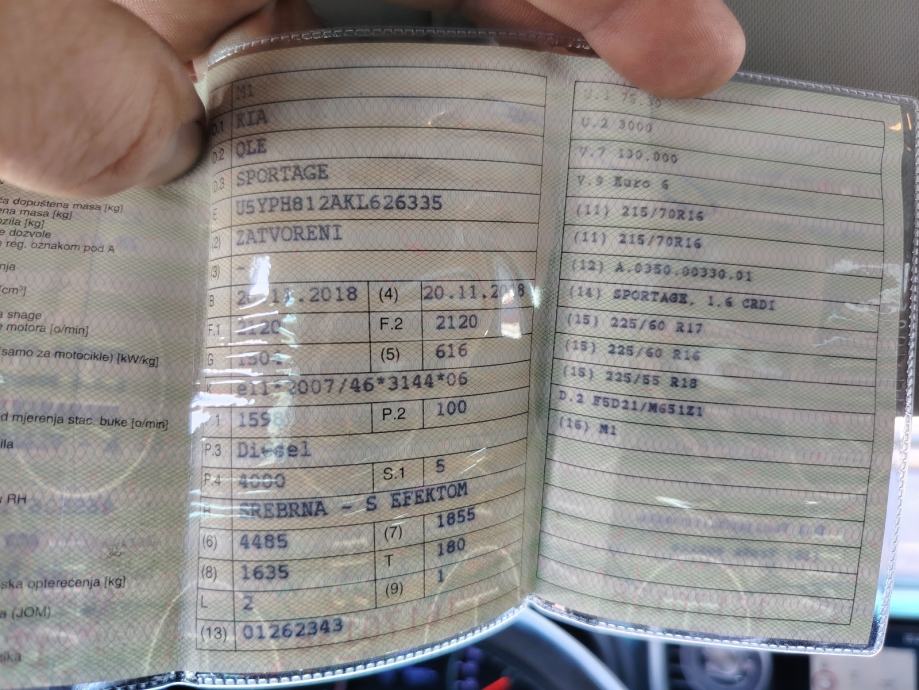 dopuštena masa [kg]
masa [kg]
[kg]
dozvole
reg. oznakom pod A
[cm³]
snage
motora [o/min]
(samo za motocikle) [kW/kg]
mjerenja stac. buke [o/min]
RH
opterećenja [kg]
(JOM)
M1
D.1 KIA
D.2 QLE
D.3 SPORTAGE
E U5YPH812AKL626335
ZATVORENI
(3) -
B 20.11.2018 (4) 20.11.2018
F.1 2120 F.2 2120
G (5) 616
e11*2007/46*3144*06
1598 P.2 100
P.3 Diesel
P.4 4000 S.1 5
SREBRNA - S EFEKTOM
(6) 4485 (7) 1855
(8) 1635 T 180
L 2 (9) 1
(13) 01262343
U.2 3000
V.7 130.000
V.9 Euro 6
(11) 215/70R16
(11) 215/70R16
(12) A.0350.00330.01
(14) SPORTAGE, 1.6 CRDI
(15) 225/60 R17
(15) 225/60 R16
(15) 225/55 R18
D.2 F5D21/M651Z1
(16) M1